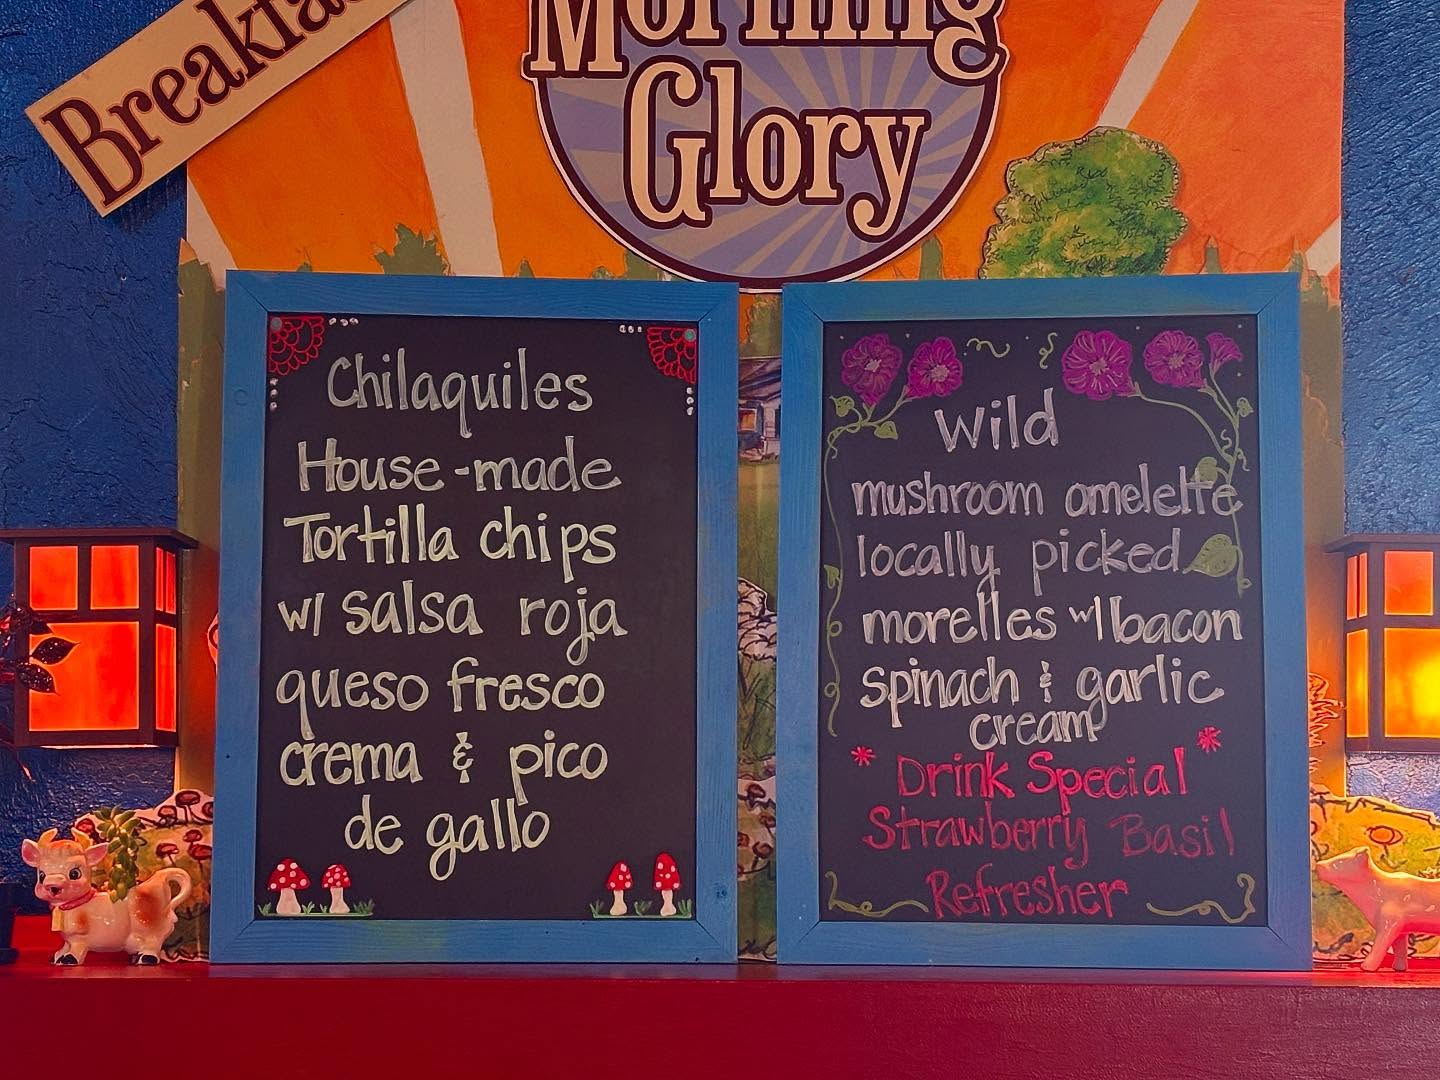 Breakfa
Morning
Glory
Chilaquiles
House-made
Tortilla chips
w/ salsa roja
queso fresco
crema & pico
de gallo
Wild
mushroom omelette
locally picked
morelles w/ bacon
spinach & garlic
cream
* Drink Special *
Strawberry Basil
Refresher